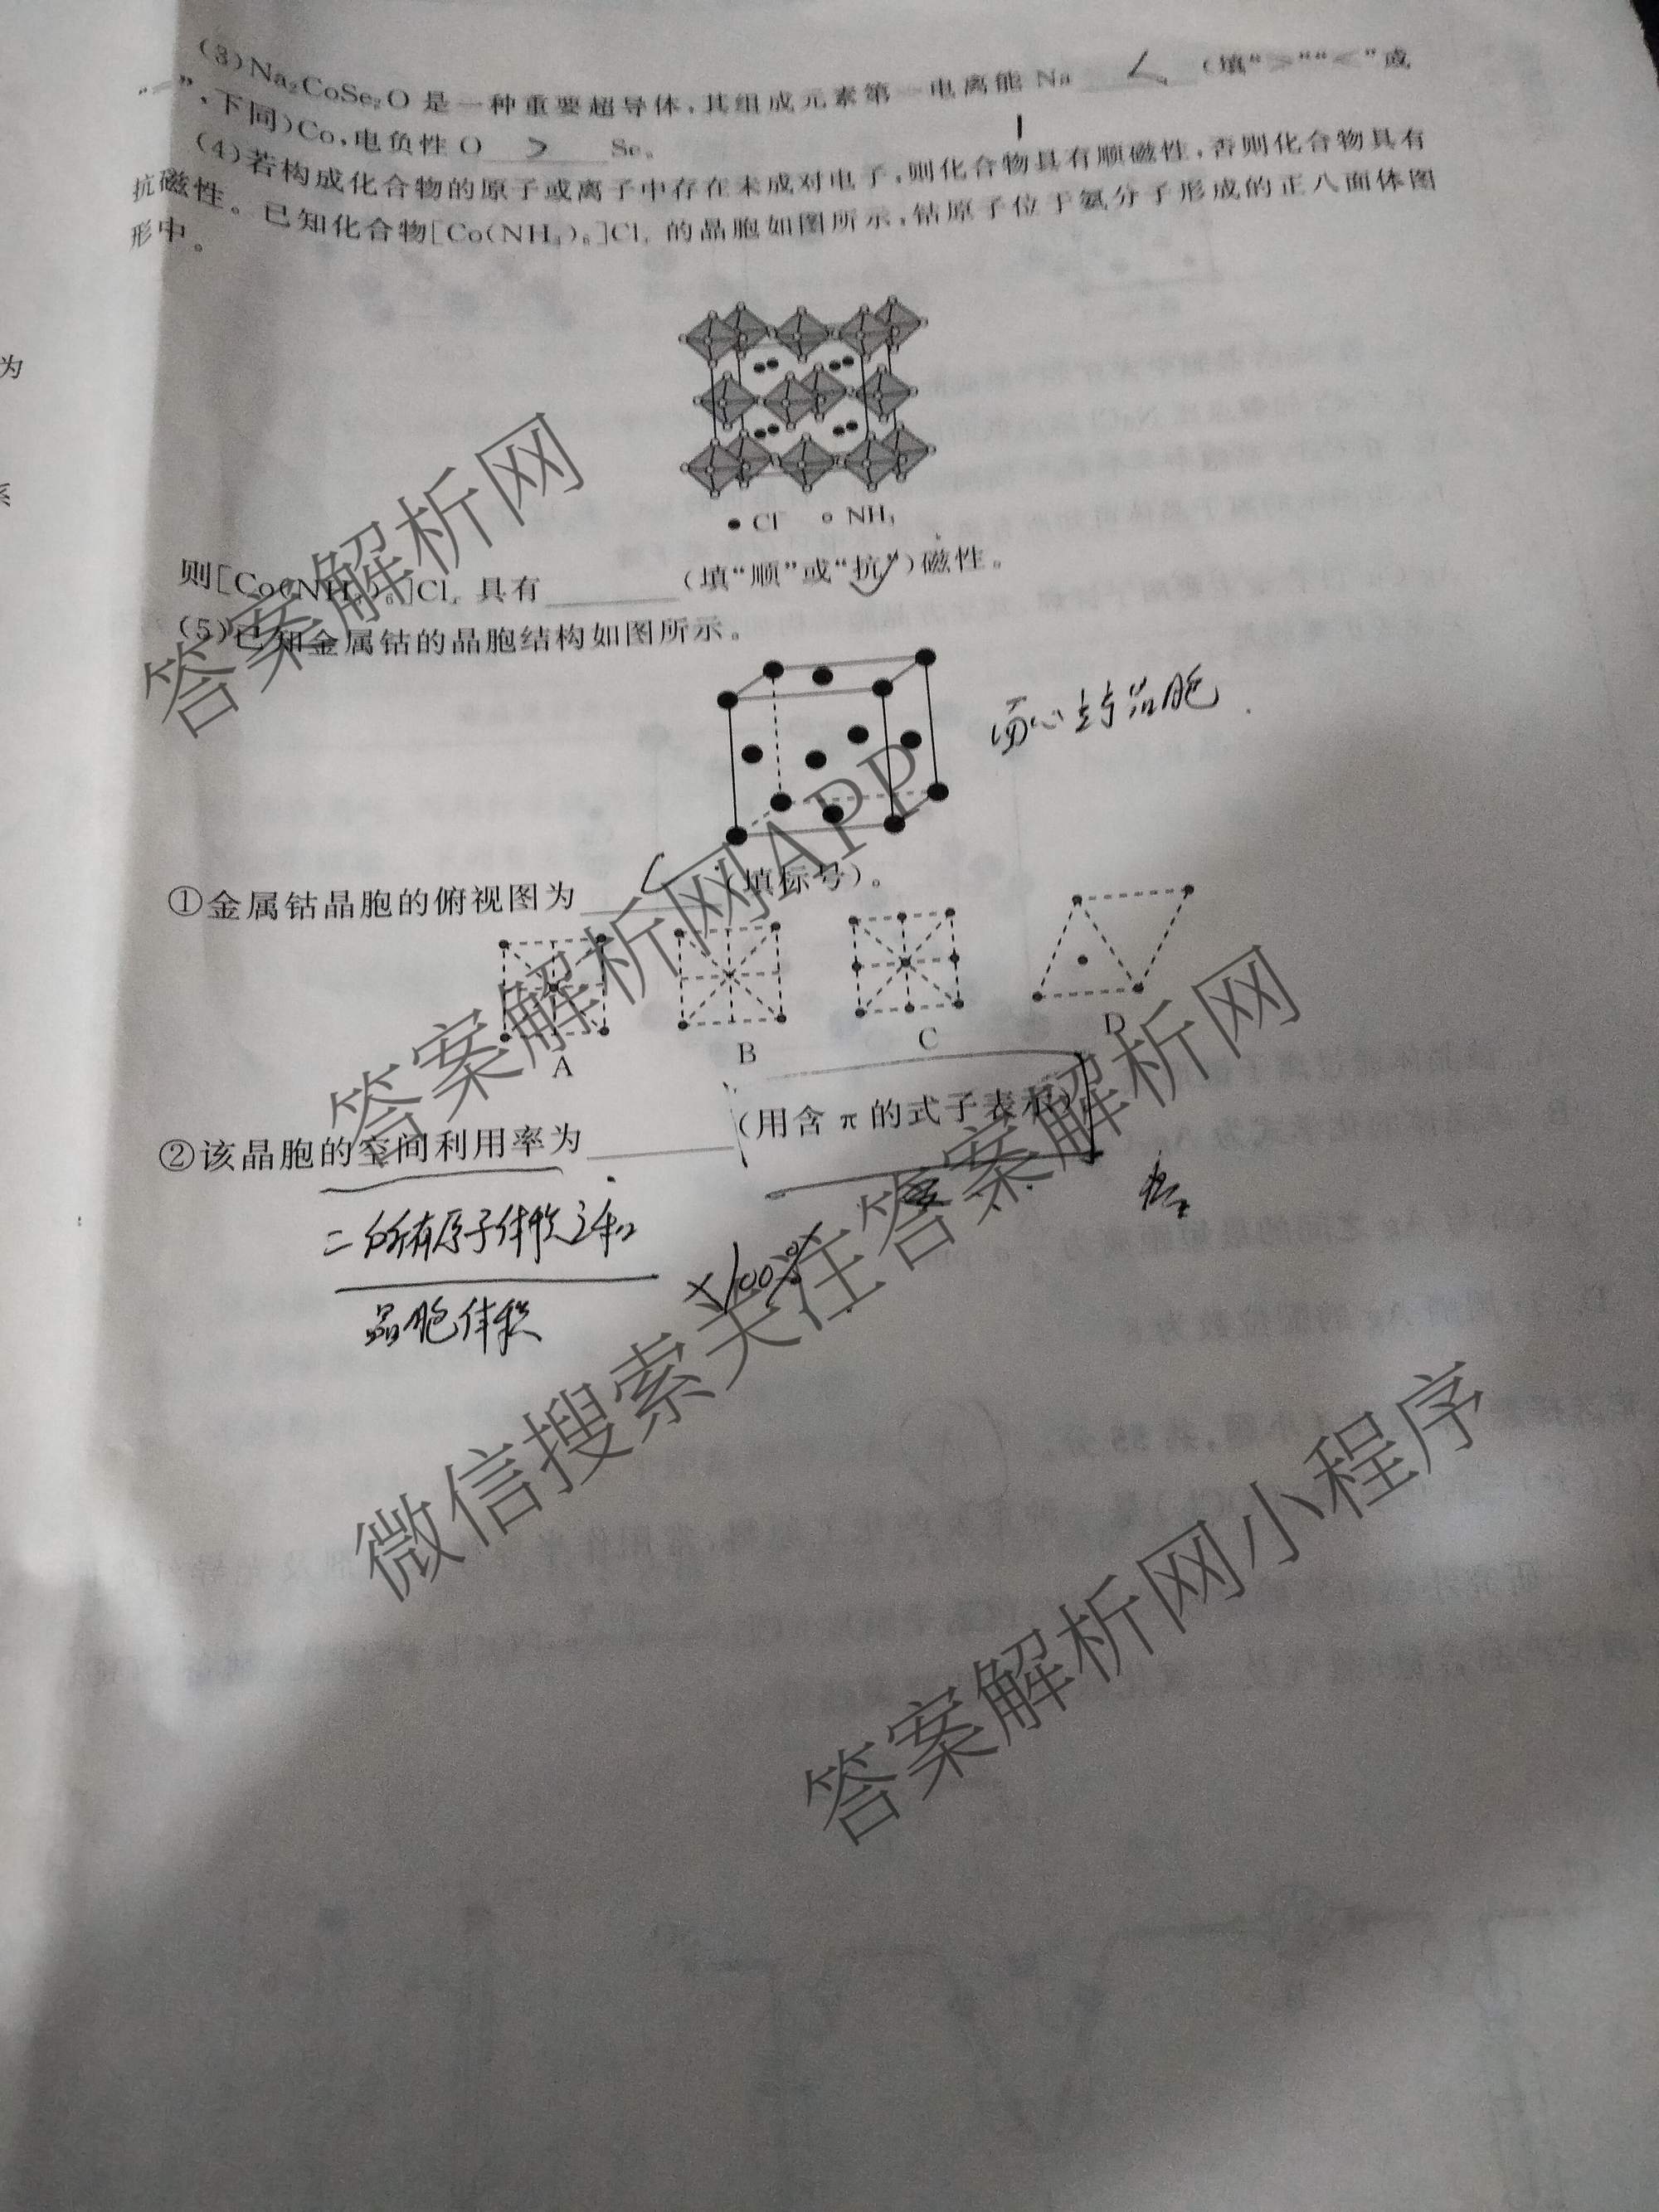 (3)Na₂CoSe₂O 是一种重要超导体,其组成元素第一电离能 Na < (填“>”“<”或
“=”,下同)Co,电负性 O > Se。
(4)若构成化合物的原子或离子中存在未成对电子,则化合物具有顺磁性,否则化合物具有
抗磁性。已知化合物[Co(NH₃)₆]Clₓ 的晶胞如图所示,钴原子位于氨分子形成的正八面体图
形中。
为
系
Cl NH₃
则[Co(NH₃)₆]Clₓ 具有 (填“顺”或“抗”)磁性。
(5)已知金属钴的晶胞结构如图所示。
面心
晶胞
①金属钴晶胞的俯视图为 C (填标号)。
A
B
C
D
②该晶胞的空间利用率为 (用含 π 的式子表示)
=所有原子体积之和
晶胞体积
×100%
答案解析网
答案解析网APP
微信搜索关注答案解析网
答案解析网小程序